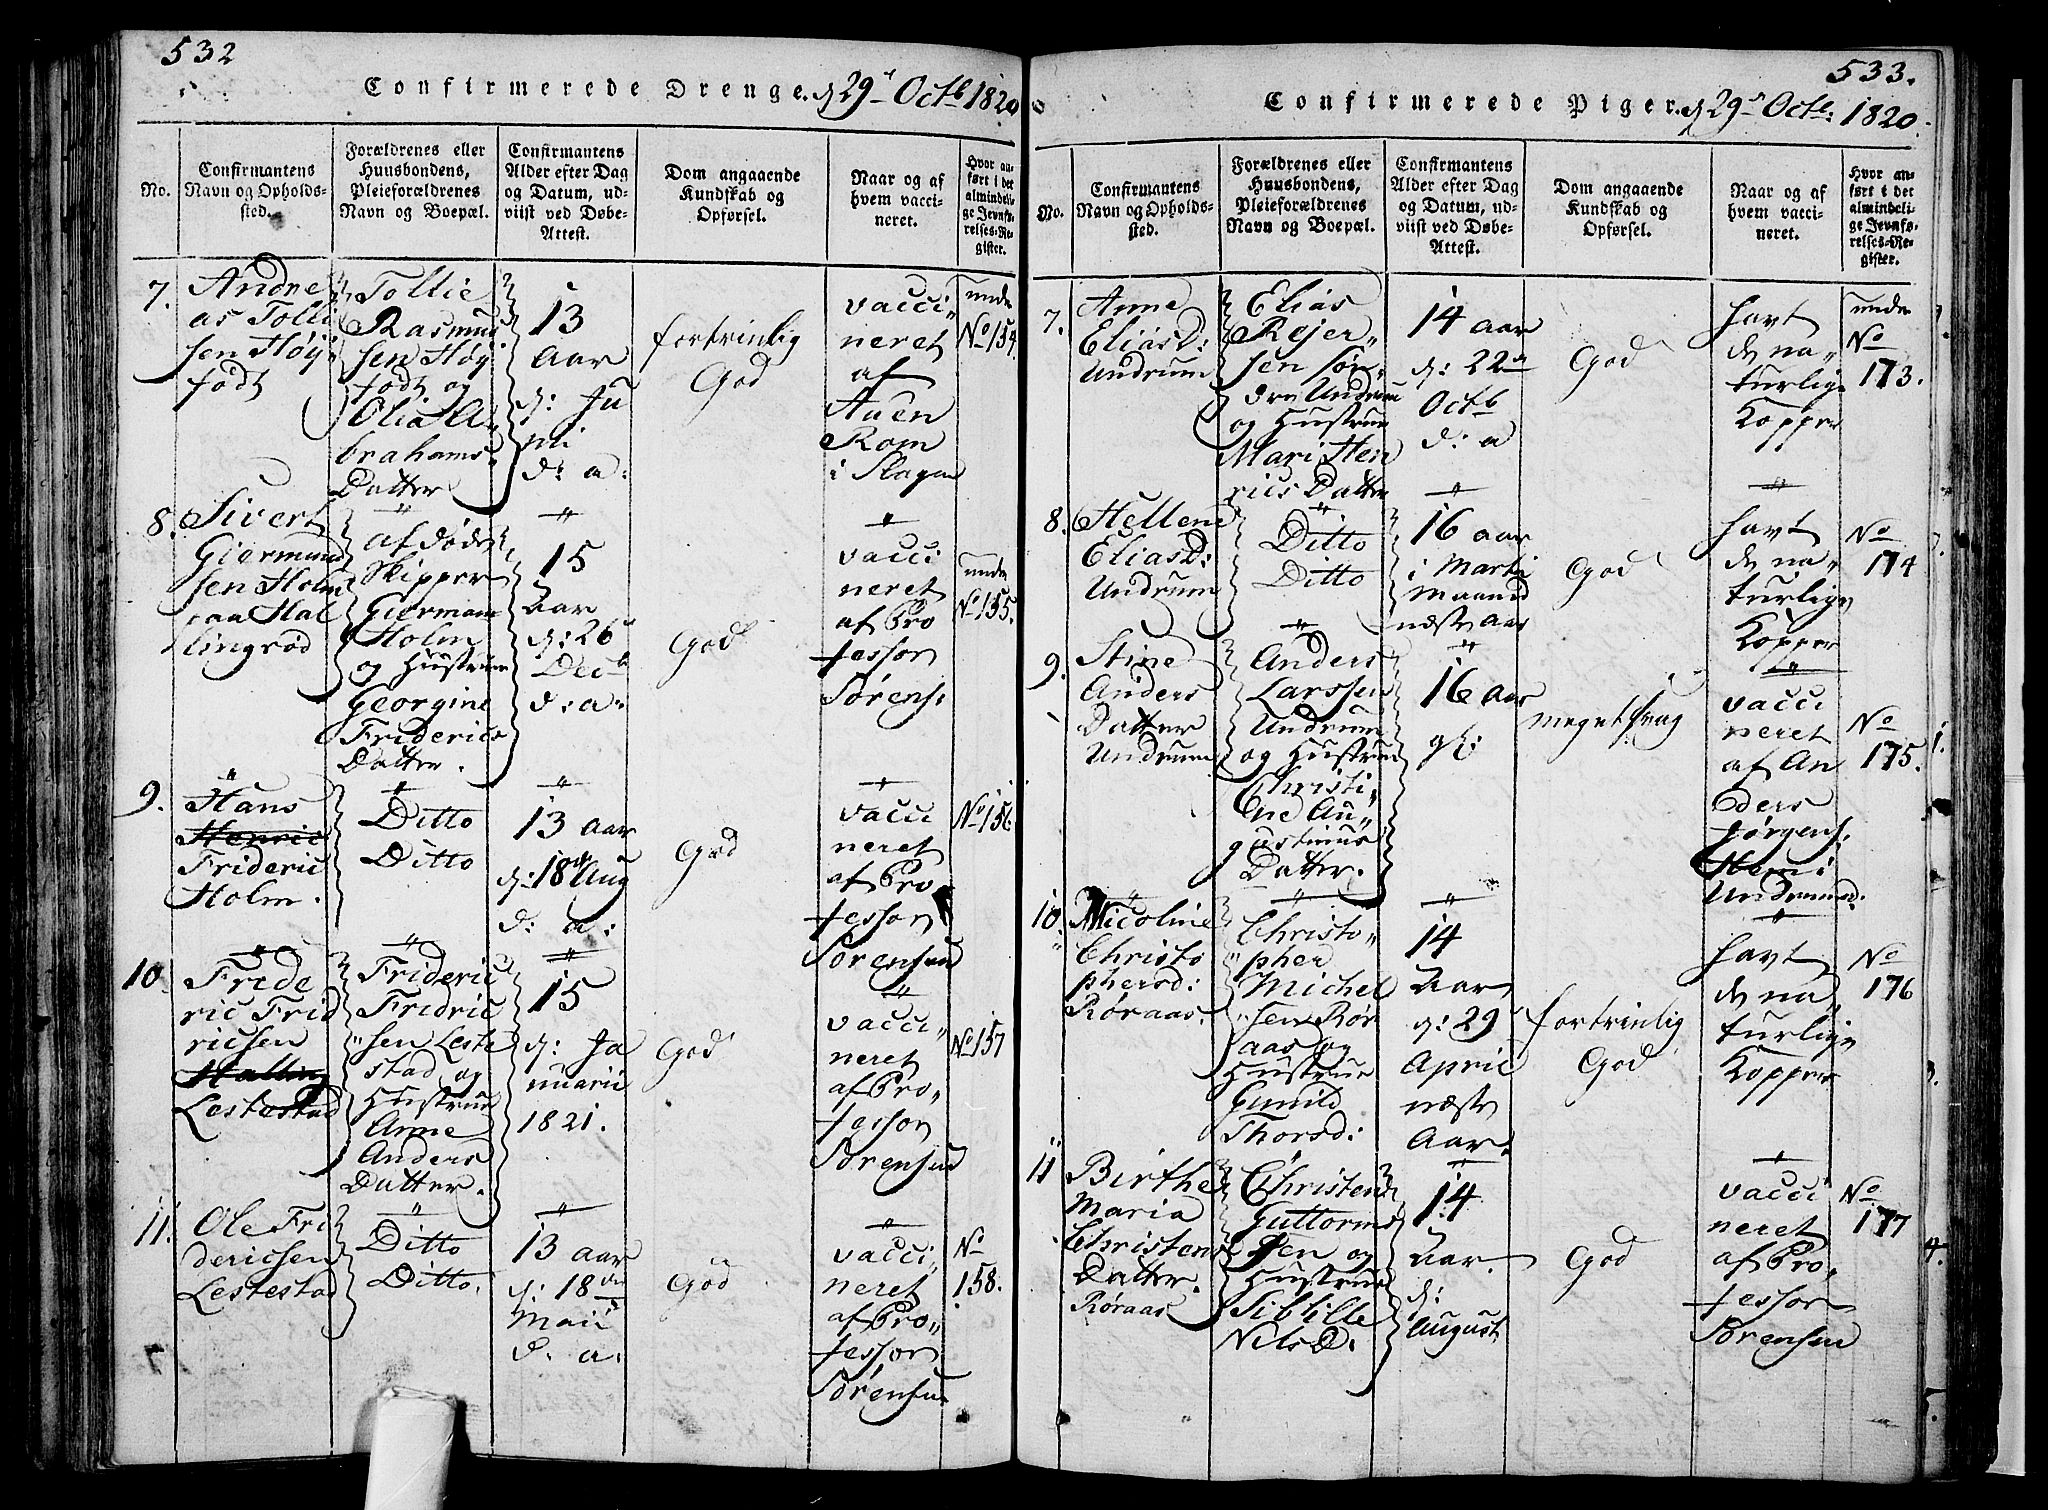 532
Confirmerede Drenge. d 29 Octb 1820
No.
Confirmantens
Navn og Opholds-
sted.
Forældrenes eller
Huusbondens,
Pleieforældrenes
Navn og Boepæl.
Confirmantens
Alder efter Dag
og Datum, ud-
viist ved Døbe-
Attest.
Dom angaaende
Kundskab og
Opførsel.
Naar og af
hvem vacci-
neret.
Hvor an-
ført i det
almindeli-
ge Jevnfø-
relses-Re-
gister.
7.
Andre
as Tolli
sen Høy
jødt
Tollie
Rasmus
sen Høy
jødt og
Olia A
brahams
Datter
13
Aar
d: Ju
ni
d: a:
fortrinlig
God
vacci
neret
af
Auen
Rom
i Slagen
unde
No 154
8.
Sivert
Giermund
sen Holm
paa Hal
lingrød
afdøde
Skipper
Giermund
Holm
og Hustrue
Georgine
Friderics
Datter.
15
Aar
d: 26
Decb
d: a:
God
vacci
neret
af Pro
fessor
Sørens:
unde
No 155.
9.
Hans
Henric
Frideric
Holm.
Ditto
Ditto
13 Aar
d: 18 Aug
d: a:
God
vacci
neret
af Pro
fessor
Sørensen
No 156
10
Fride
ric Frid
ricsen
Halling
Lestestad
Frideric
Fridric
sen Leste
stad og
Hustrue
Anne
Anders
Datter.
15
d: Ja
nuarii
1821.
God
vacci
neret
af Pro
fessor
Sørensen
No 157
11.
Ole Fri
dericsen
Lestestad
Ditto
Ditto.
13 Aar
d: 18
Maii
d: a:
God
vacci
neret
af Pro
fessor
Sørensen
No
158.
533.
Confirmerede Piger. d 29 Octb: 1820.
No.
Confirmantens
Navn og Opholds-
sted.
Forældrenes eller
Huusbondens,
Pleieforældrenes
Navn og Boepæl.
Confirmantens
Alder efter Dag
og Datum, ud-
viist ved Døbe-
Attest.
Dom angaaende
Kundskab og
Opførsel.
Naar og af
hvem vacci-
neret.
Hvor an-
ført i det
almindeli-
ge Jevnfø-
relses-Re-
gister.
7.
Anne
Elias D:
Undrum
Elias
Rejer
sen Søn
dre Undrum
og Hustrue
Mari Hen
rics Datter
14 Aar
d: 22
Octb
d: a
God
havt
de na
turlige
Kopper
unde
No
173.
8.
Hellene
Elias D:
Undrum
Ditto
Ditto
16 Aar
i Marti
Maaned
næste Aar
God
havt
de na
turlige
Kopper
No
174
9.
Stine
Anders
Datter
Undrum
Anders
Larssen
Undrum
og Hustrue
Christi
ne Au
gustinus
Datter.
16 Aar
gl:
meget svag
vacci
neret
af An
ders
Jørgens:
Hem i
Undrum
No
175.
10
Nicoline
Christo
phersd:
Røraas.
Christo
pher
Michel
sen Rør
aas og
Hustrue
Gunild
Thorsd:
14
Aar
d: 29
April
næste
Aar
fortrinlig
God
havt
de na
turlige
Kopper
No
176
11
Birthe
Maria
Christens
Datter.
Røraas
Christen
Guttorm
sen og
Hustrue
Sibbille
Nils D:
14
Aar.
d:
August
God
vacci
neret
af Pro
fessor
Sørensen
No
177